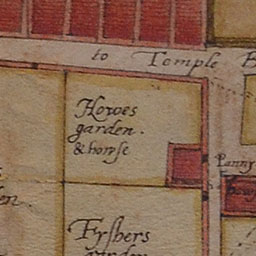 to Temple B
Howes
garden.
& howse
Panny
Fyshers
garden